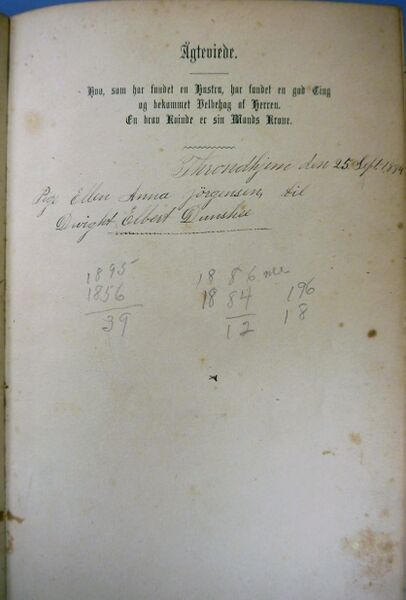 Ägteviede.
Hvo, som har fundet en Hustru, har fundet en god Ting
og bekommet Velbehag af Herren.
En brav Kvinde er sin Mands Krone.
Throndhjem den 25 Sept.
Pige Ellen Anna Jörgensen, til
Dwight Elbert Dunshee
1895 1886
1856 1884 196
39 12 18